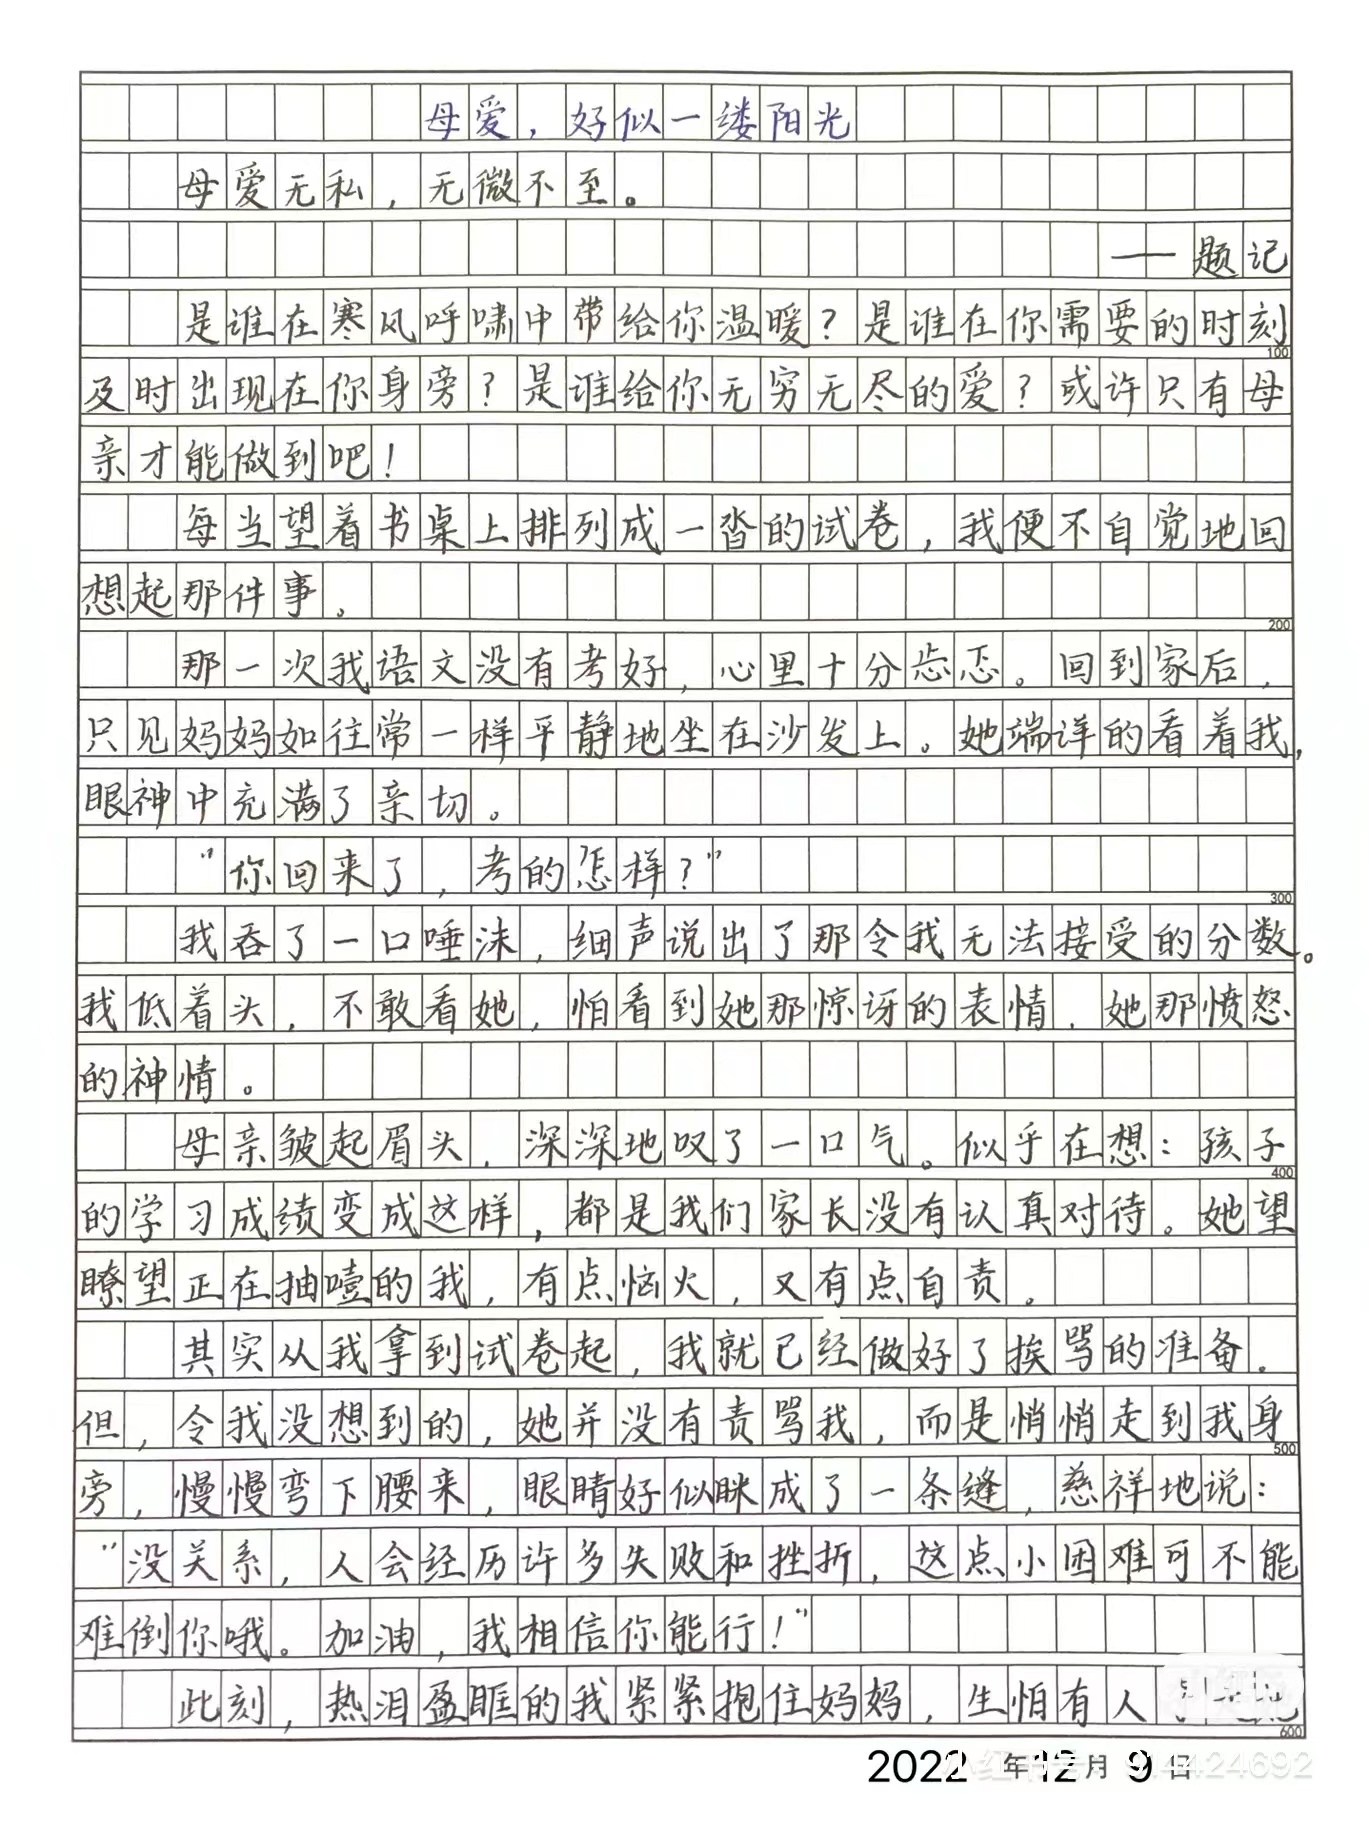 母爱，好似一缕阳光
母爱无私，无微不至。
——题记
是谁在寒风呼啸中带给你温暖？是谁在你需要的时刻
100
及时出现在你身旁？是谁给你无穷无尽的爱？或许只有母
亲才能做到吧！
每当望着书桌上排列成一沓的试卷，我便不自觉地回
想起那件事。
200
那一次我语文没有考好，心里十分忐忑。回到家后，
只见妈妈如往常一样平静地坐在沙发上。她端详的看着我，
眼神中充满了亲切。
“你回来了，考的怎样？”
300
我吞了一口唾沫，细声说出了那令我无法接受的分数。
我低着头，不敢看她，怕看到她那惊讶的表情，她那愤怒
的神情。
母亲皱起眉头，深深地叹了一口气。似乎在想：孩子
400
的学习成绩变成这样，都是我们家长没有认真对待。她望
瞭望正在抽噎的我，有点恼火，又有点自责。
其实从我拿到试卷起，我就已经做好了挨骂的准备。
但，令我没想到的，她并没有责骂我，而是悄悄走到我身
500
旁，慢慢弯下腰来，眼睛好似眯成了一条缝，慈祥地说：
“没关系，人会经历许多失败和挫折，这点小困难可不能
难倒你哦。加油，我相信你能行！”
此刻，热泪盈眶的我紧紧抱住妈妈，生怕有人
600
2022年12月9日